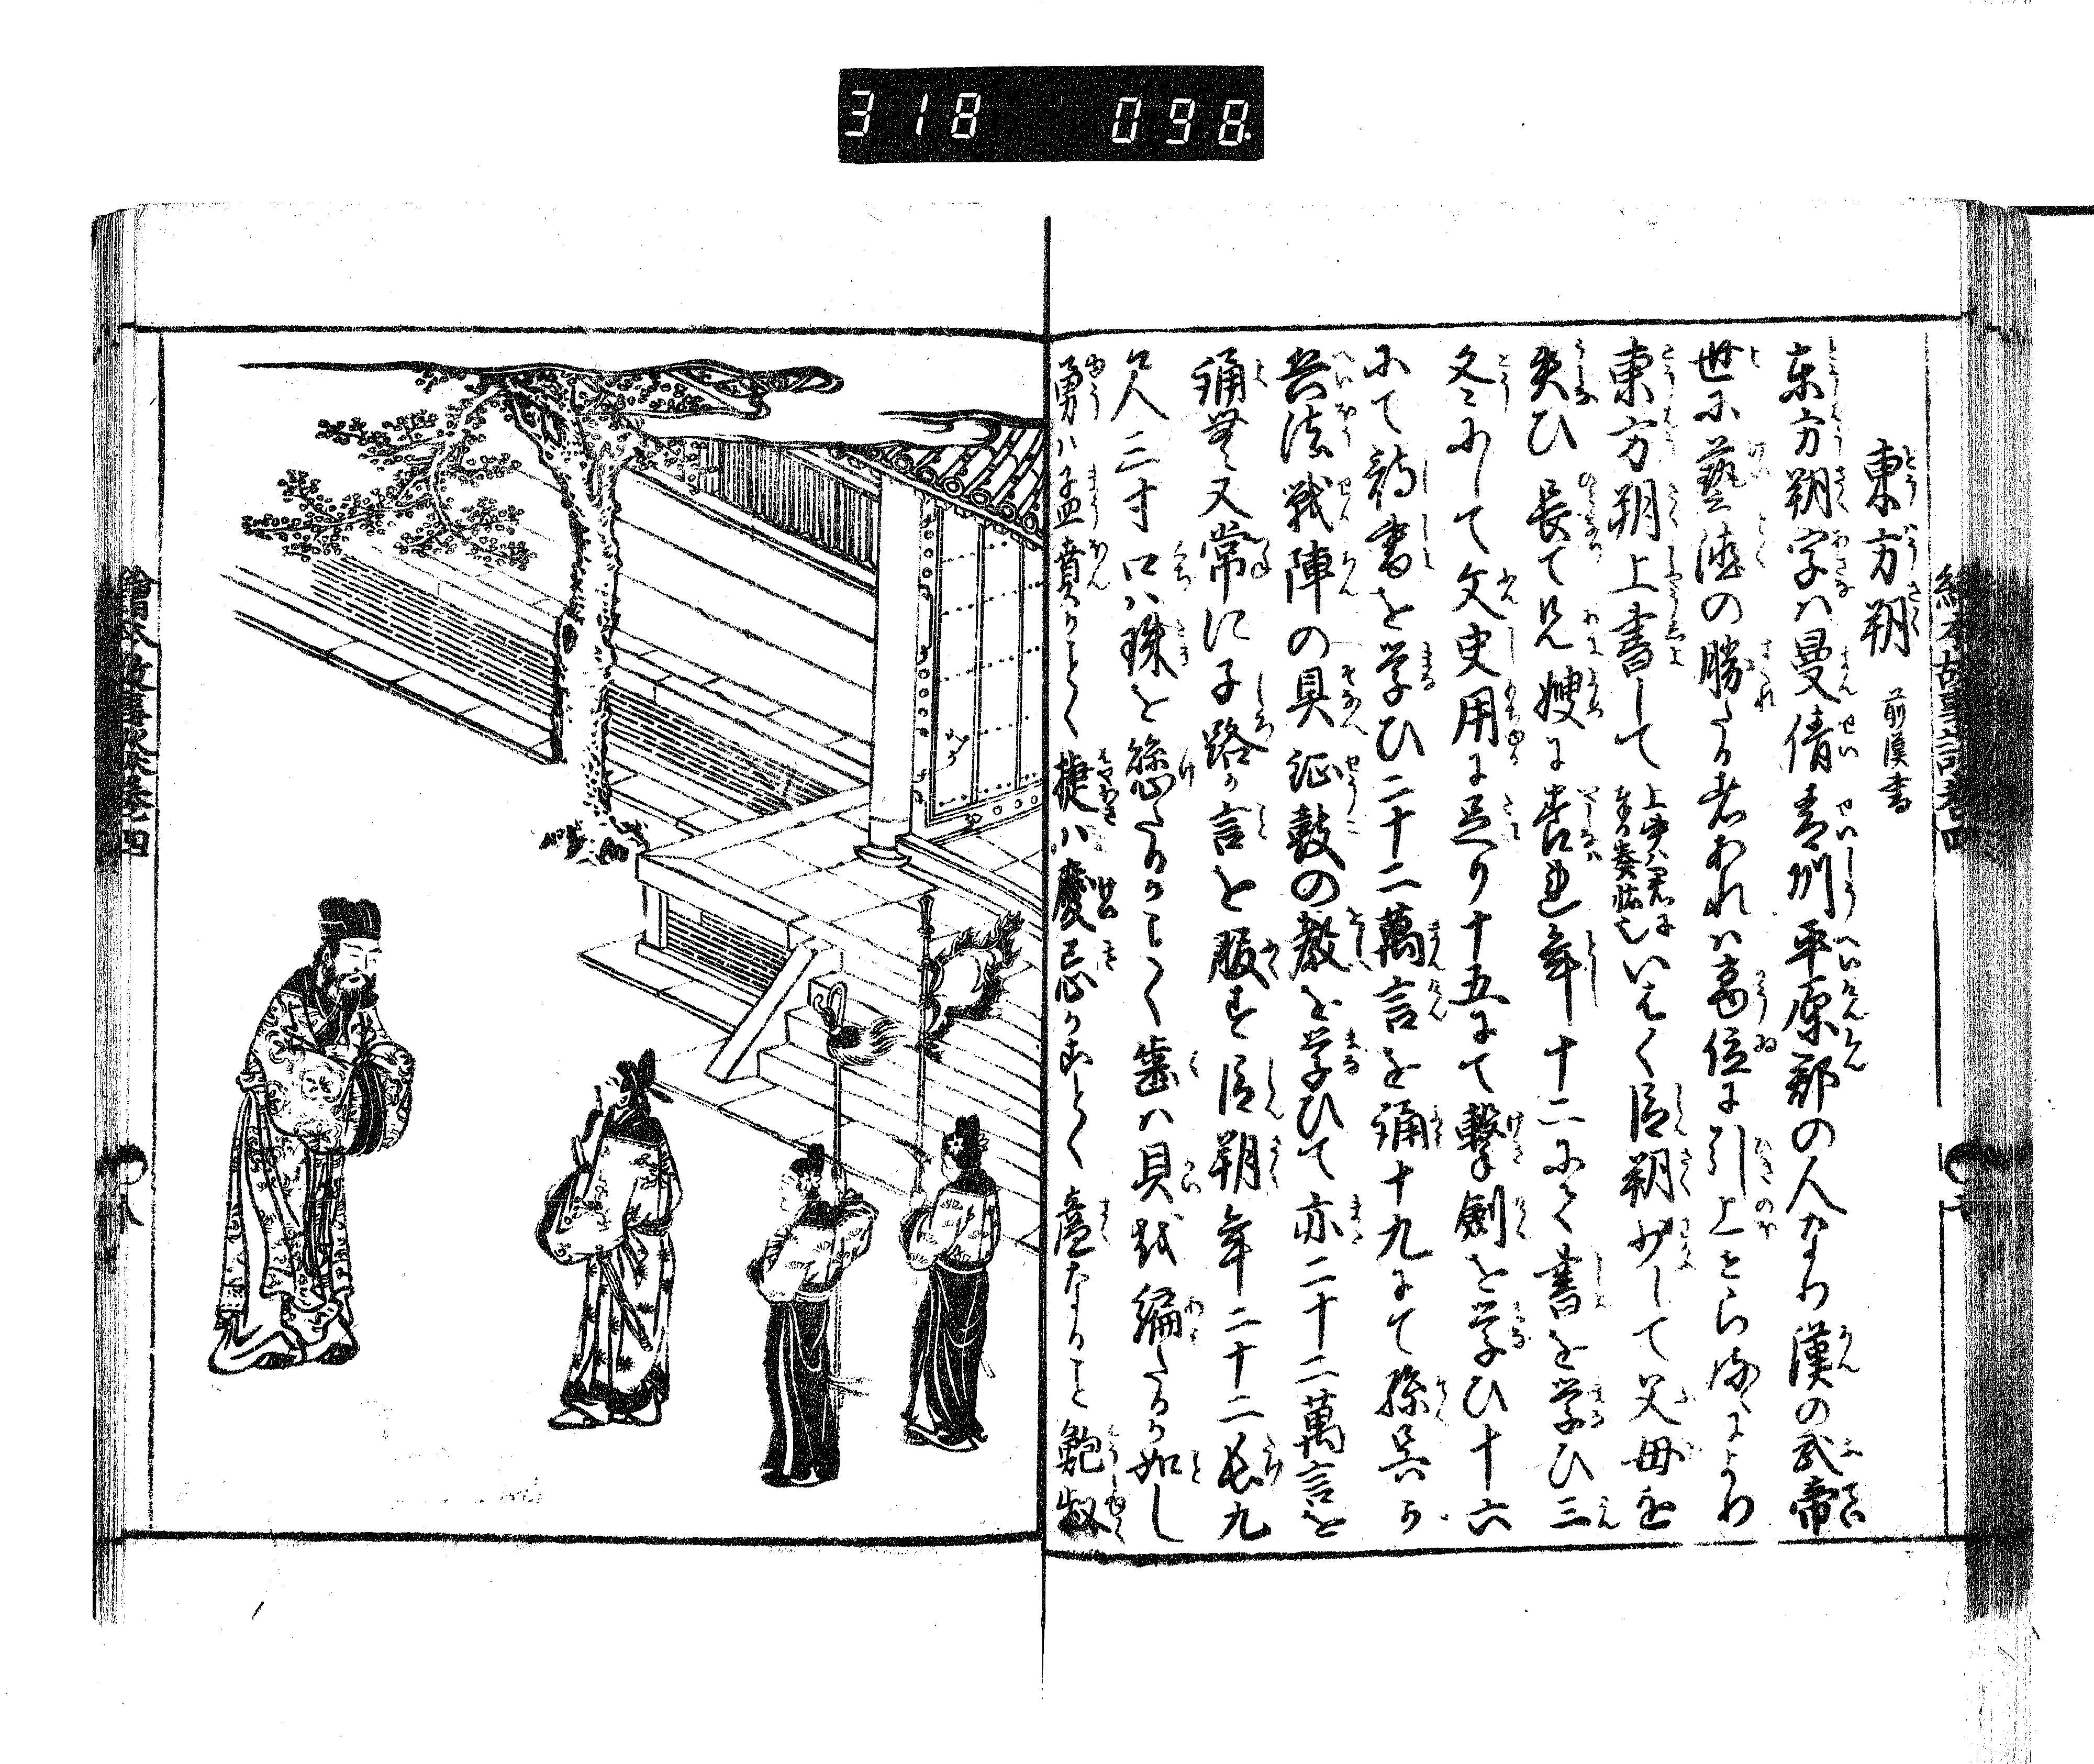 318 098
東方朔 前漢書
東方朔字は曼倩青州平原郡の人なり漢の武帝
世に藝徳の勝たる者あれは高位に引上とらしめ
東方朔上書して いはく臣朔少して父母を
失ひ長て兄嫂に養れ年十二にて書を学ひ三
冬にして文史用に足り十五にて撃劍を学ひ十六
にて詩書を学ひ二十二萬言を誦十九にて孫呉か
兵法戦陣の具鉦鼓の教を学ひて亦二十二萬言を
誦 又常に子路か言を服す臣朔年二十二長九
尺三寸目は珠を懸たるかことく歯は貝を編たるか如し
勇は孟賁かことく捷は慶忌かことく廉なること鮑叔
繪本故事談卷四